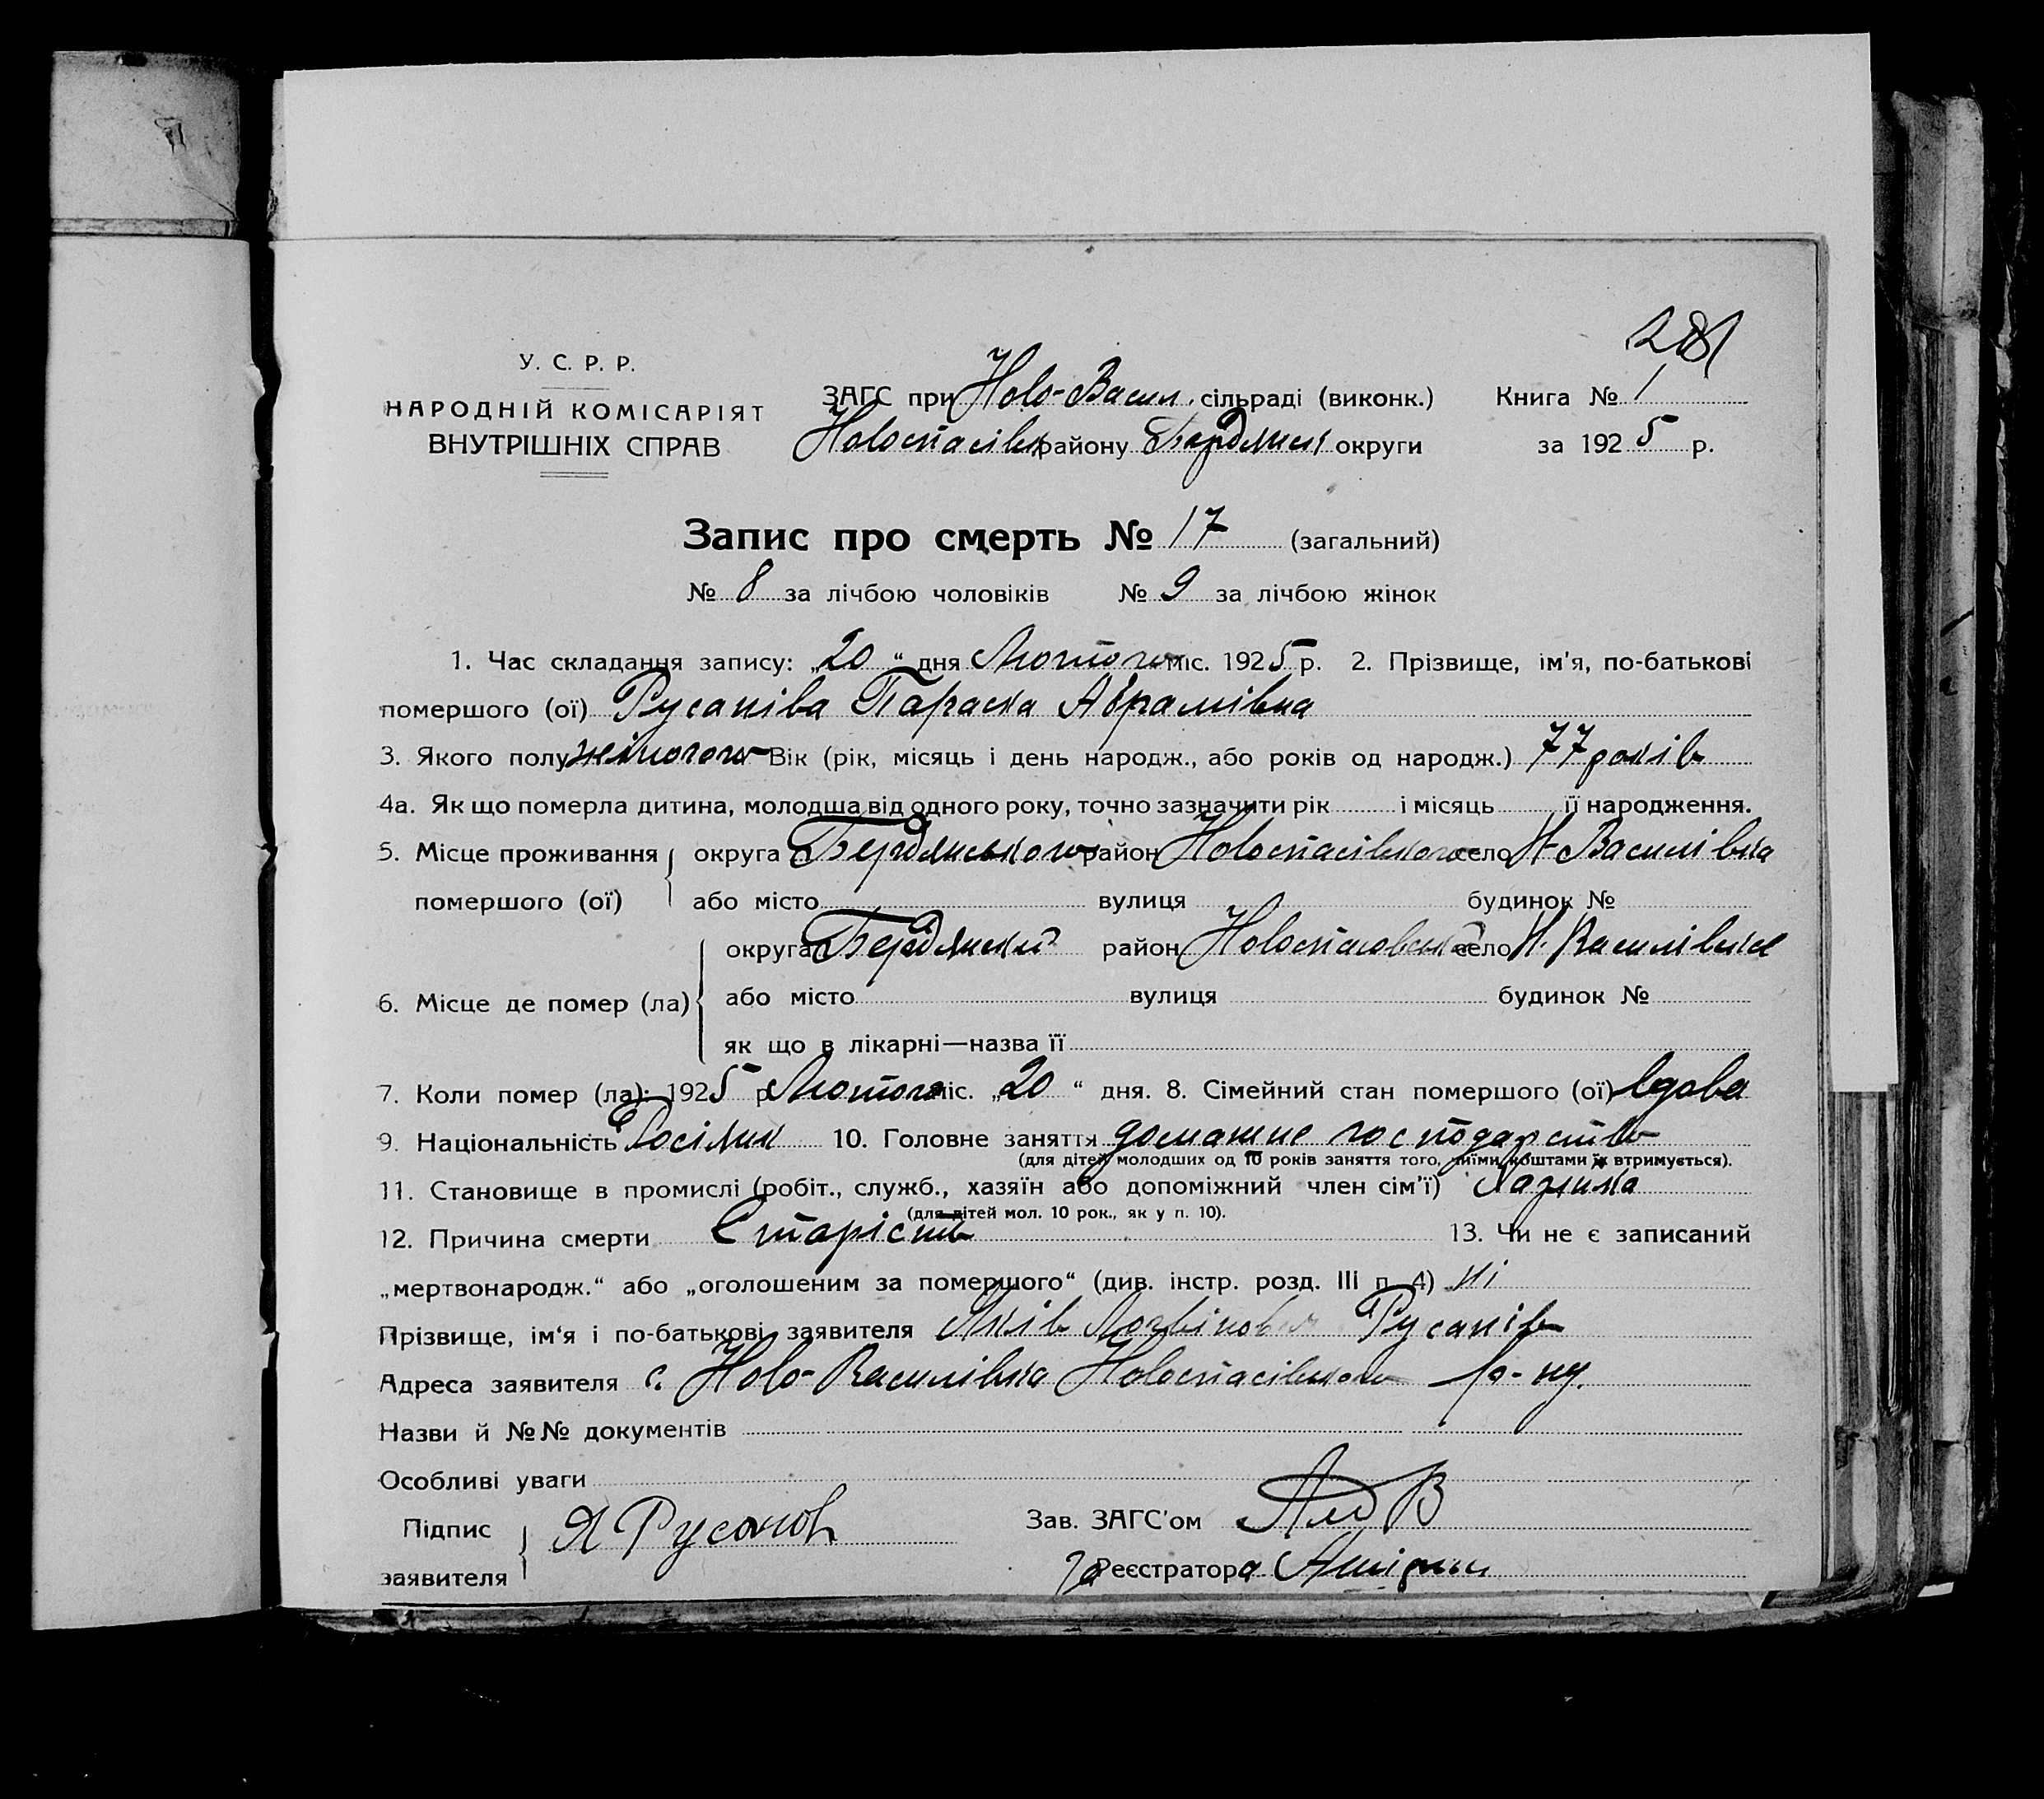 281
У. С. Р. Р.
НАРОДНІЙ КОМІСАРІЯТ
ВНУТРІШНІХ СПРАВ
ЗАГС при Ново-Васил. сільраді (виконк.) Книга № 1
Новоспасівськ району Бердянськ округи за 1925 р.
Запис про смерть № 17 (загальний)
№ 8 за лічбою чоловіків № 9 за лічбою жінок
1. Час складання запису: „20“ дня Лютого міс. 1925 р. 2. Прізвище, ім'я, по-батькові
помершого (ої) Русанівa Параска Абрамівна
3. Якого полу жіночого Вік (рік, місяць і день народж., або років од народж.) 77 років
4а. Як що померла дитина, молодша від одного року, точно зазначити рік і місяць її народження.
5. Місце проживання округа Бердянського район Новоспасівського село Н-Василівка
помершого (ої) або місто вулиця будинок №
округа Бердянський район Новоспасовський село Н. Василівка
6. Місце де помер (ла) або місто вулиця будинок №
як що в лікарні—назва її
7. Коли помер (ла): 1925 р. Лютого міс. „20“ дня. 8. Сімейний стан помершого (ої) вдова
9. Національність Росіян 10. Головне заняття домашне господарство
(для дітей молодших од 10 років заняття того, чиїми коштами їх втримується).
11. Становище в промислі (робіт., служб., хазяїн або допоміжний член сім'ї)
(для дітей мол. 10 рок., як у п. 10).
12. Причина смерти Старість 13. Чи не є записаний
„мертвонародж.“ або „оголошеним за помершого“ (див. інстр. розд. III п. 4) ні
Прізвище, ім'я і по-батькові заявителя Яків Логвінов Русанів
Адреса заявителя с. Ново-Василівка Новоспасівського р-ну.
Назви й №№ документів
Особливі уваги
Підпис заявителя Я Русанов Зав. ЗАГС'ом
За Реєстратора